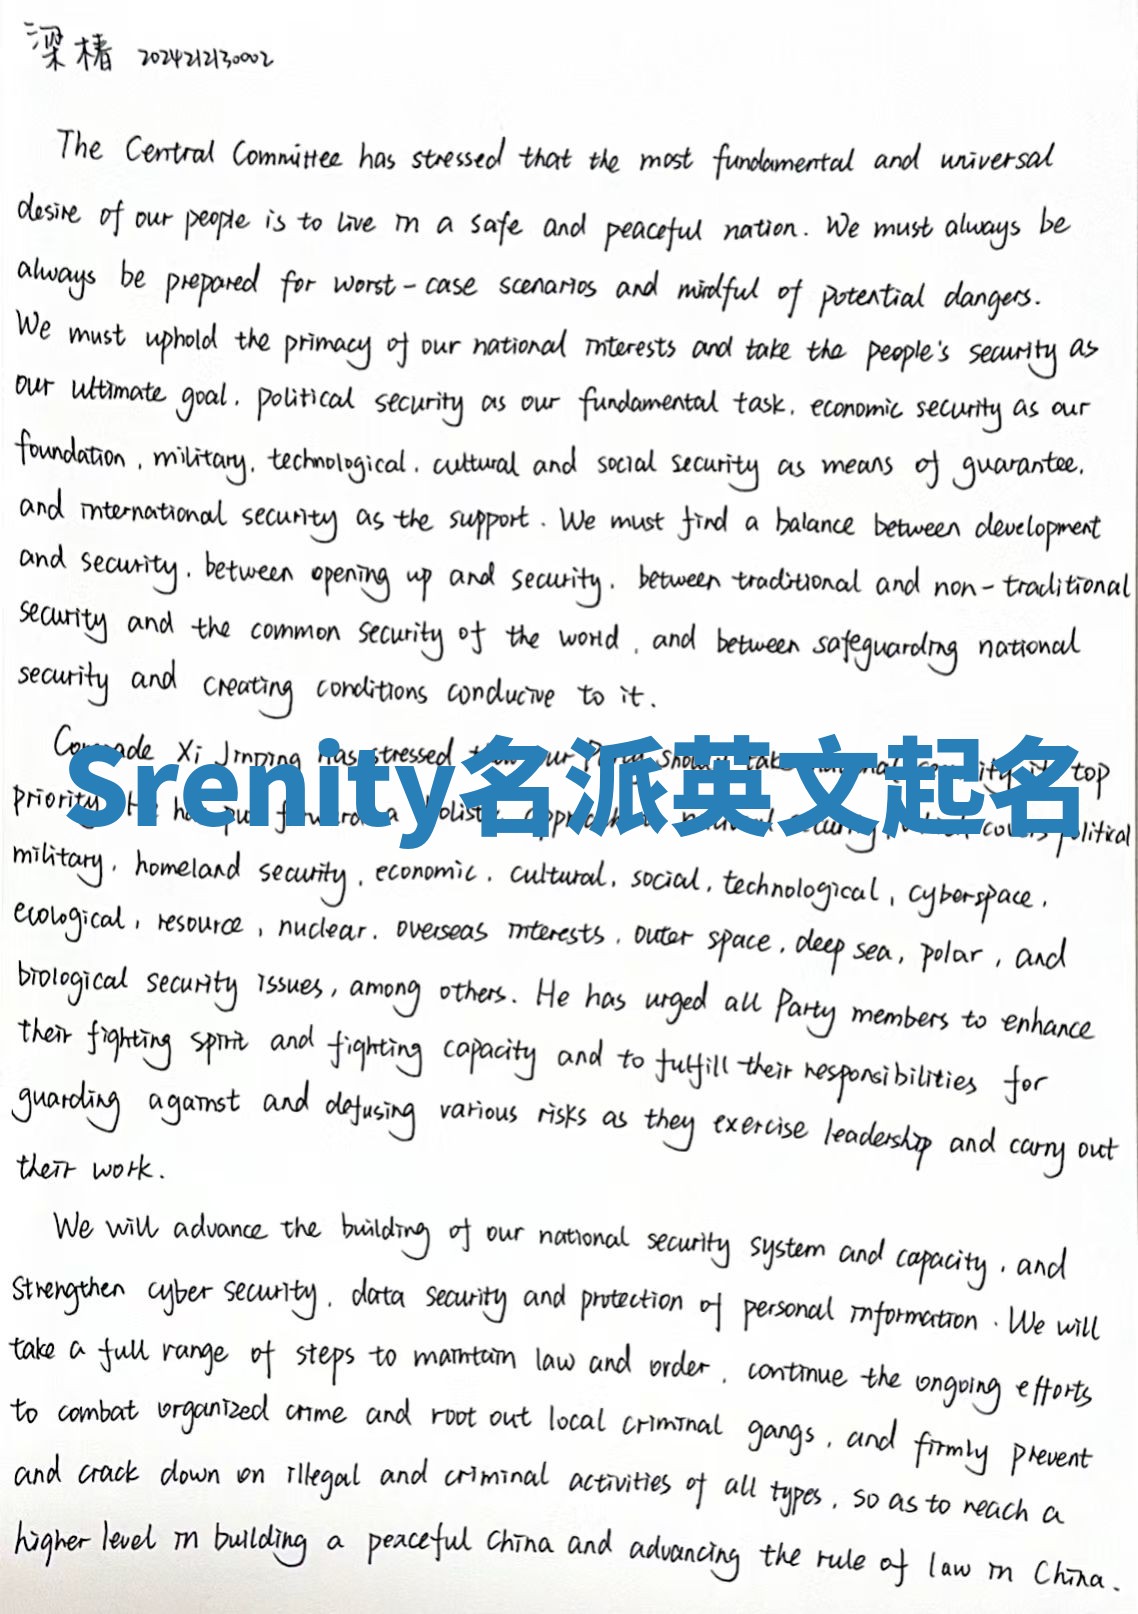 梁椿 2024212130002
The Central Committee has stressed that the most fundamental and universal
desire of our people is to live in a safe and peaceful nation. We must always be
always be prepared for worst-case scenarios and mindful of potential dangers.
We must uphold the primacy of our national interests and take the people's security as
our ultimate goal, political security as our fundamental task, economic security as our
foundation, military, technological, cultural and social security as means of guarantee,
and international security as the support. We must find a balance between development
and security, between opening up and security, between traditional and non-traditional
security and the common security of the world, and between safeguarding national
security and creating conditions conducive to it.
Comrade Xi Jinping has stressed our top
Srenity名派英文起名
priority political
military, homeland security, economic, cultural, social, technological, cyberspace,
ecological, resource, nuclear, overseas interests, outer space, deep sea, polar, and
biological security issues, among others. He has urged all Party members to enhance
their fighting spirit and fighting capacity and to fulfill their responsibilities for
guarding against and defusing various risks as they exercise leadership and carry out
their work.
We will advance the building of our national security system and capacity, and
strengthen cyber security, data security and protection of personal information. We will
take a full range of steps to maintain law and order, continue the ongoing efforts
to combat organized crime and root out local criminal gangs, and firmly prevent
and crack down on illegal and criminal activities of all types, so as to reach a
higher level in building a peaceful China and advancing the rule of law in China.